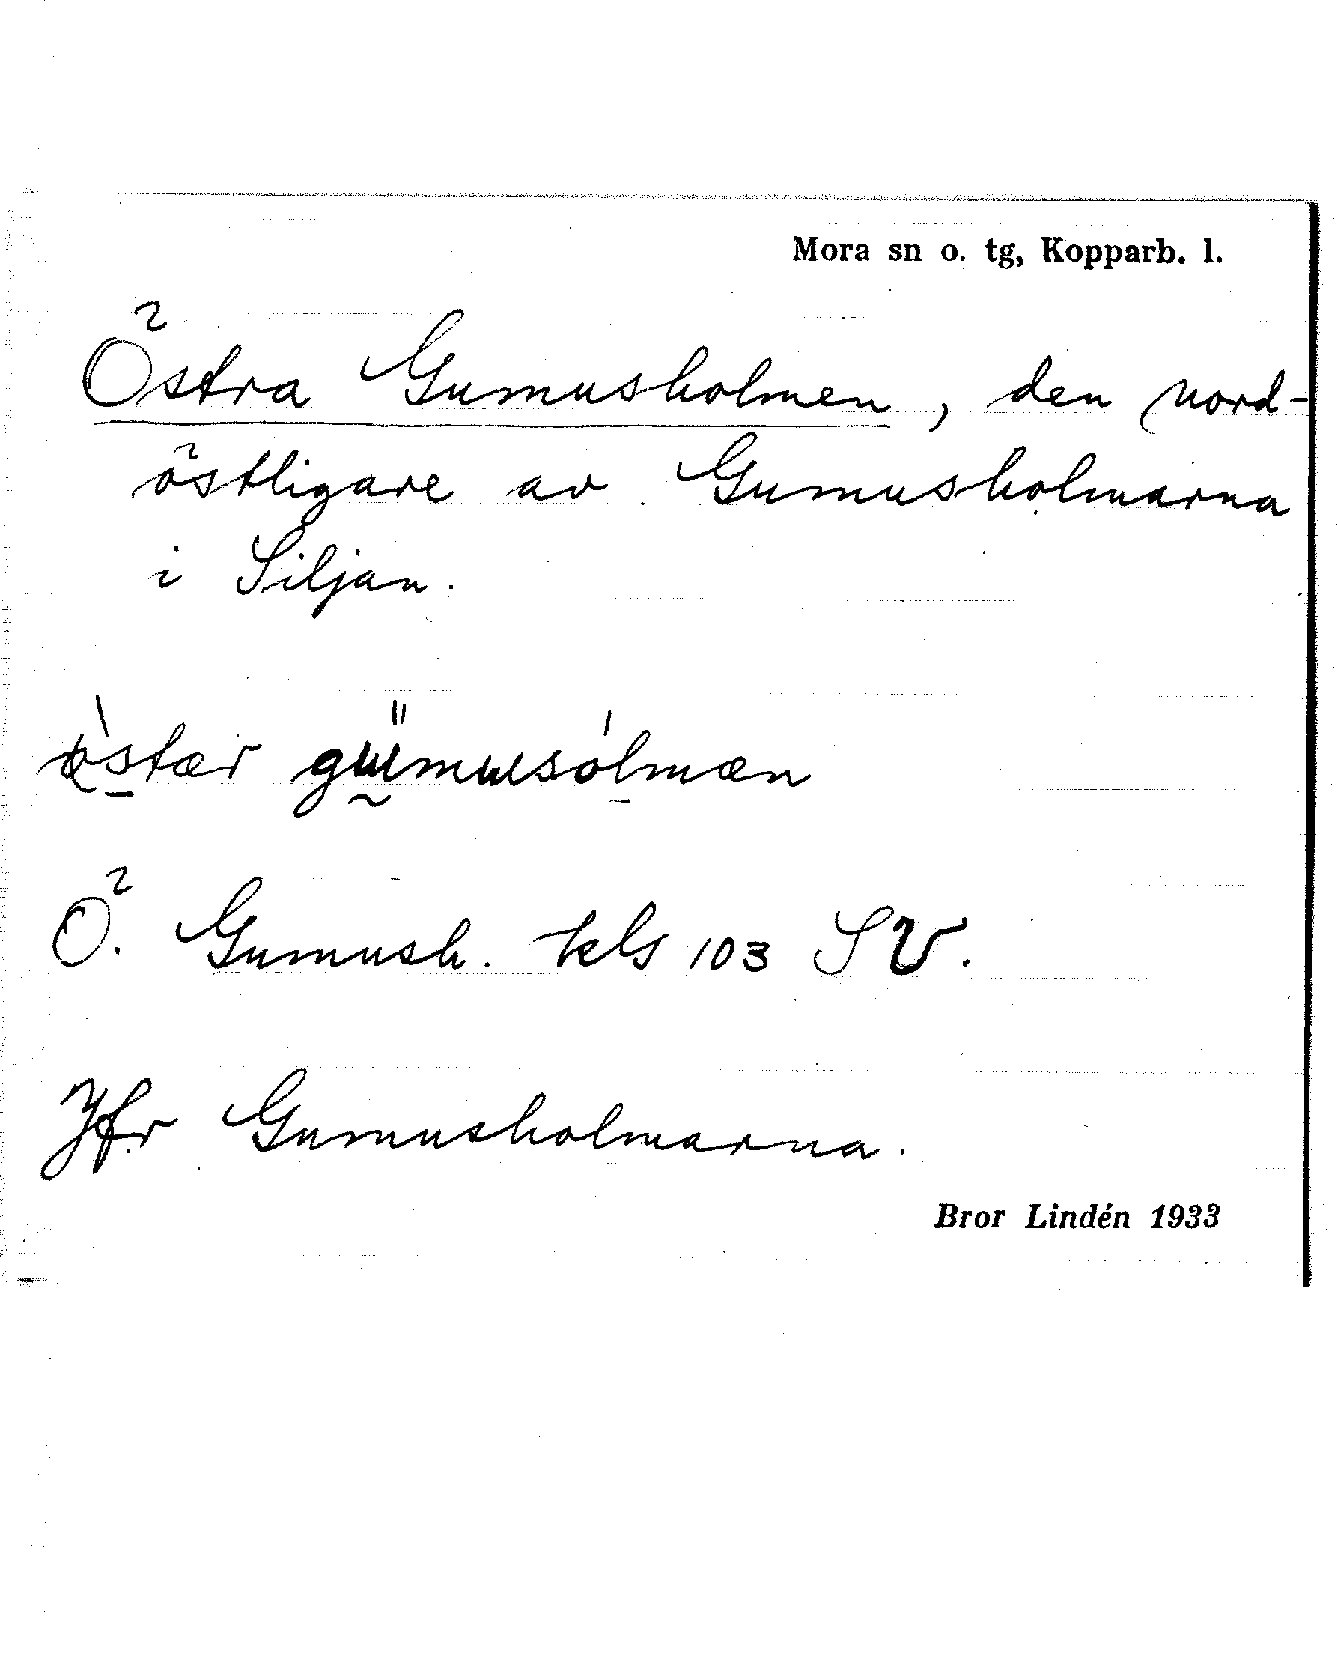 Mora sn o. tg, Kopparb. l.
Östra Gumusholmen, den nord-
östligare av Gumusholmarna
i Siljan.
Ö. Gumush. kls 103 SV.
Jfr Gumusholmarna.
Bror Lindén 1933